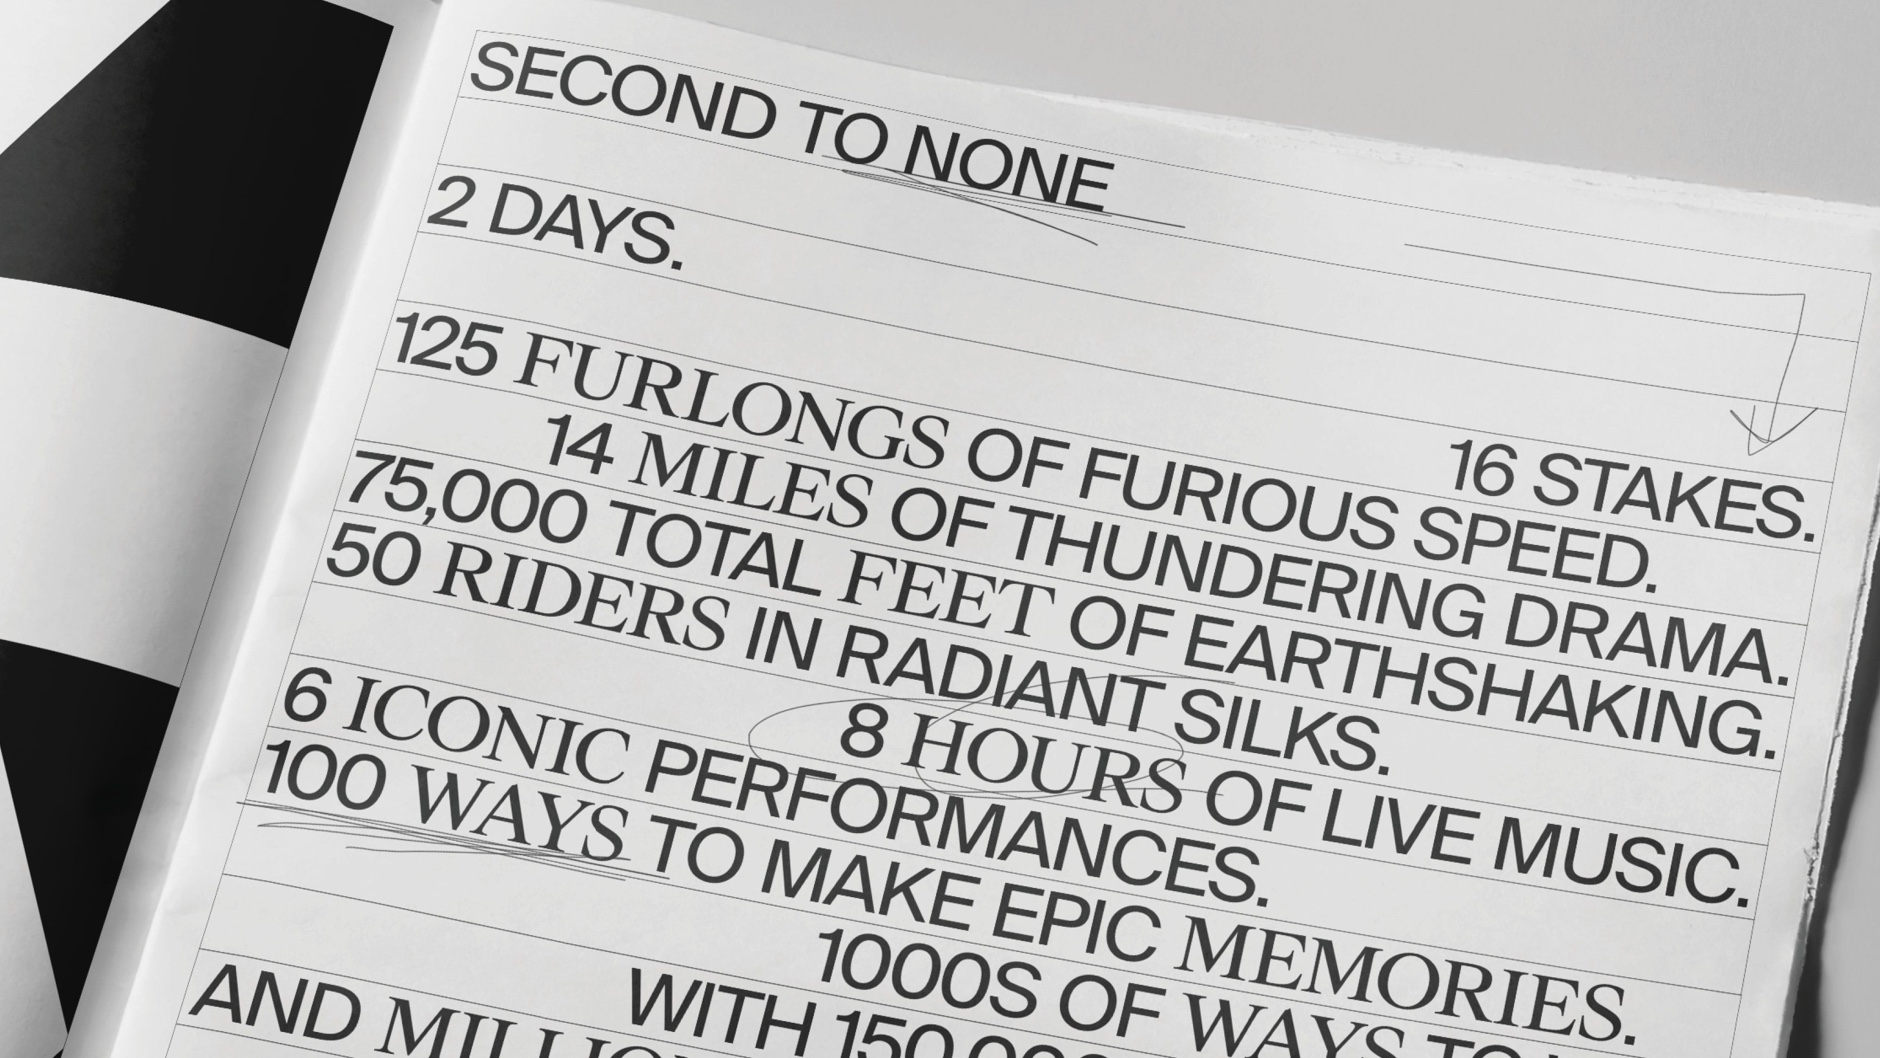 SECOND TO NONE
2 DAYS.
16 STAKES.
125 FURLONGS OF FURIOUS SPEED.
14 MILES OF THUNDERING DRAMA.
75,000 TOTAL FEET OF EARTHSHAKING.
50 RIDERS IN RADIANT SILKS.
8 HOURS OF LIVE MUSIC.
6 ICONIC PERFORMANCES.
100 WAYS TO MAKE EPIC MEMORIES.
1000S OF WAYS TO
WITH
AND